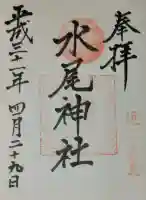 奉拝
水尾神社
平成三十一年 四月二十九日